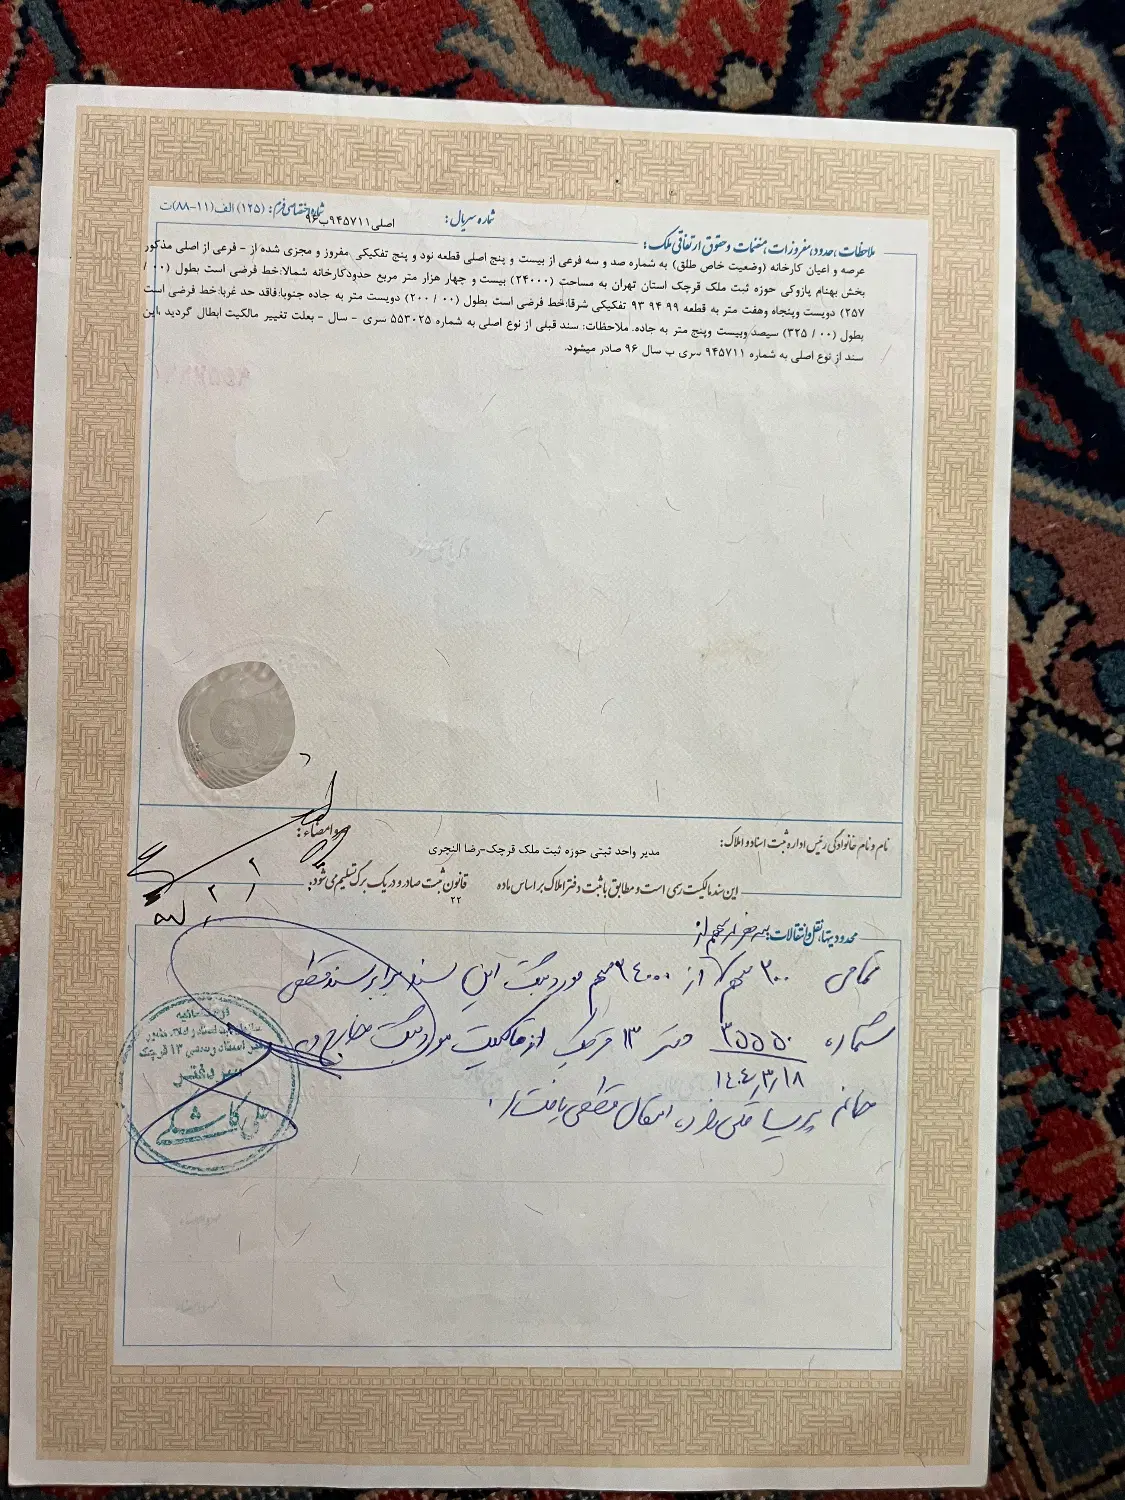 شماره اختصاصی فرم: (۱۲۵) الف(۱۱-۸۸)ت
شماره سریال: اصلی۹۴۵۷۱۱ب۹۶
ملاحظات، حدود، مفروزات، منضمات و حقوق ارتفاقی ملک:
عرصه و اعیان کارخانه (وضعیت خاص طلق) به شماره صد و سه فرعی از بیست و پنج اصلی قطعه نود و پنج تفکیکی مفروز و مجزی شده از - فرعی از اصلی مذکور
بخش بهنام پازوکی حوزه ثبت ملک قرچک استان تهران به مساحت (۲۴۰۰۰) بیست و چهار هزار متر مربع حدودکارخانه شمالا:خط فرضی است بطول (۰۰ /
۲۵۷) دویست وپنجاه وهفت متر به قطعه ۹۹ ۹۴ ۹۳ تفکیکی شرقا:خط فرضی است بطول (۰۰ / ۲۰۰) دویست متر به جاده جنوبا:فاقد حد غربا:خط فرضی است
بطول (۰۰ / ۳۲۵) سیصد وبیست وپنج متر به جاده. ملاحظات: سند قبلی از نوع اصلی به شماره ۵۵۳۰۲۵ سری - سال - بعلت تغییر مالکیت ابطال گردید ،این
سند از نوع اصلی به شماره ۹۴۵۷۱۱ سری ب سال ۹۶ صادر میشود.
نام و نام خانوادگی رئیس اداره ثبت اسناد و املاک:
و امضاء:
مدیر واحد ثبتی حوزه ثبت ملک قرچک-رضا النجری
این سند مالکیت رسمی است و مطابق با ثبت دفتر املاک بر اساس ماده ۲۲ قانون ثبت صادر و در یک برگ تسلیم می شود:
محدودیتها، نقل و انتقالات:
تمامی ۳۰۰ سهم از ۲۴۰۰۰ سهم مورد ثبت این سند برابر سند قطعی
شماره ۳۵۵۵۰ دفتر ۱۳ قرچک از مالکیت مورد ثبت خارج و به
۱۴۰۴/۳/۱۸
خانم پریسا انتقال قطعی یافت.
سردفتر
علی کاشکی